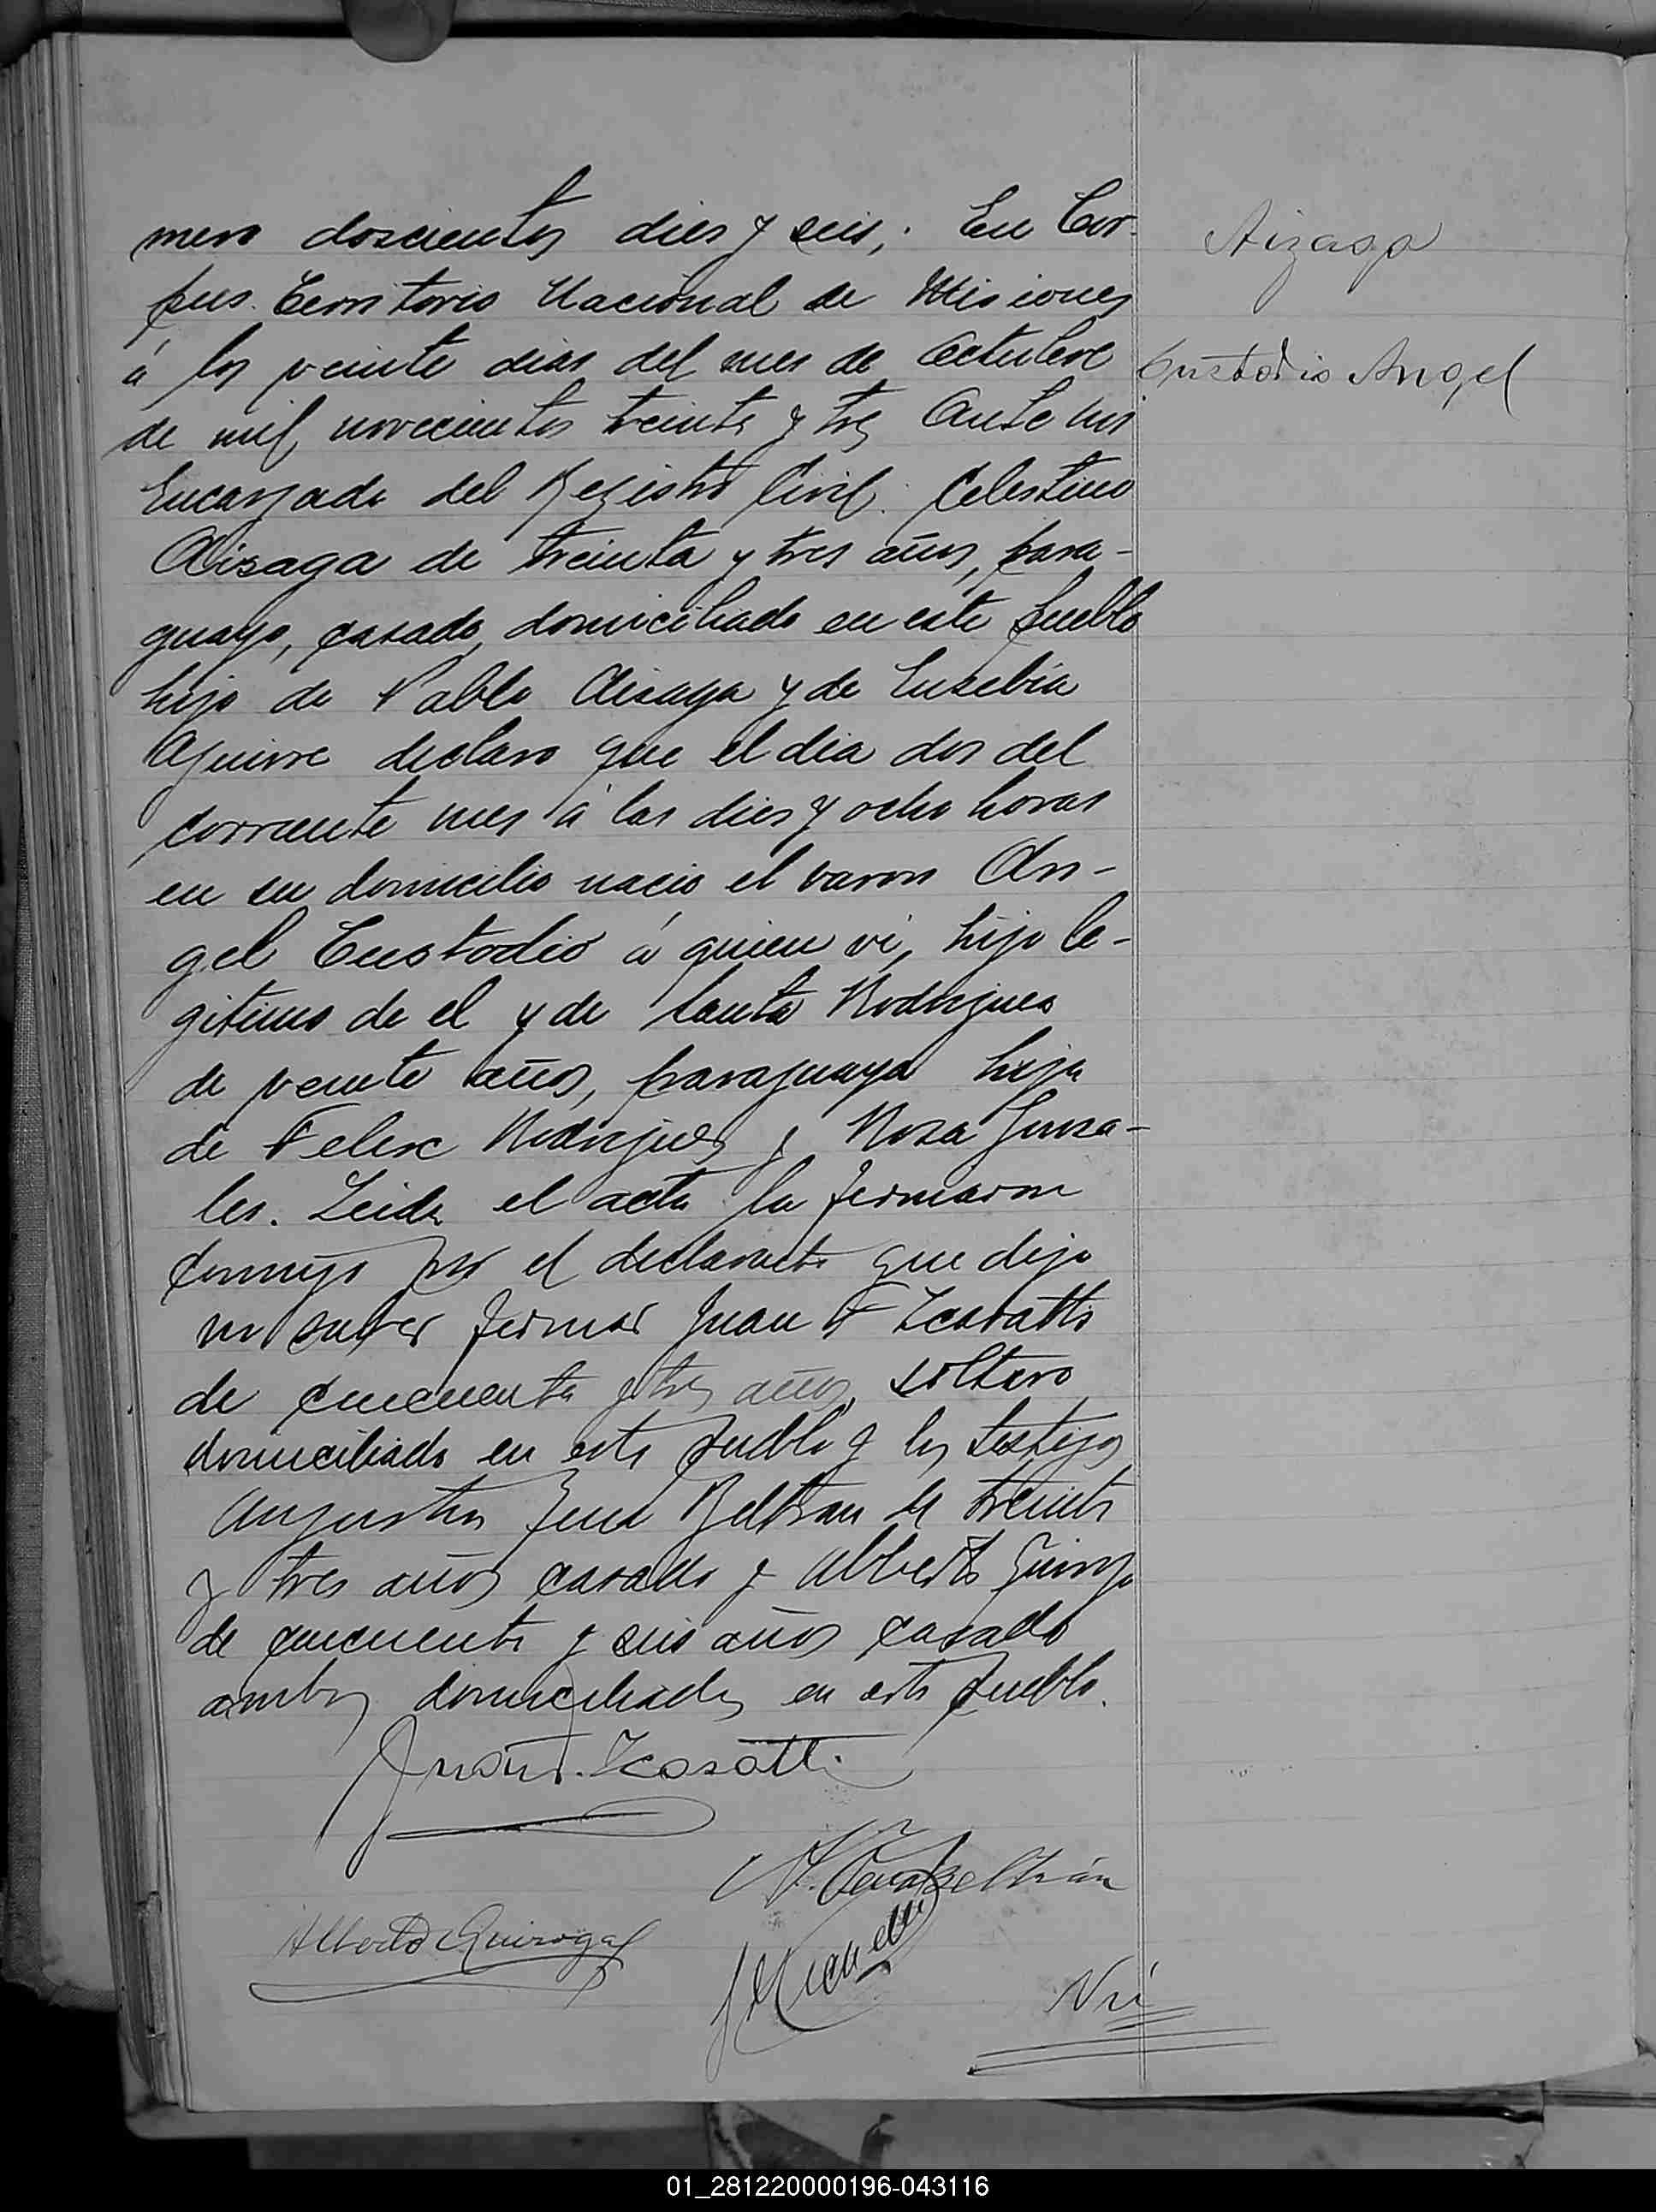 mero doscientos dies y seis; En Cor-
pus. Territorio Nacional de Misiones
á los veinte dias del mes de Octubre
de mil novecientos treinta y tres Ante mi
Encargado del Registro Civil. Celestino
Aisaga de treinta y tres años, para-
guayo, casado, domiciliado en este pueblo
hijo de Pablo Aisaga y de Eusebia
Aguirre declaro que el dia dos del
corriente mes á las dies y ocho horas
en su domicilio nacio el varon An-
gel Custodio á quien vi, hijo le-
gitimo de el y de Santa Rodrigues
de veinte años, paraguaya hija
de Felix Rodrigues y Rosa Gonsa-
les. Leida el acta la firmaron
conmigo por el declarante que dijo
no saber firmar Juan F
de cincuenta y tres años, soltero
domiciliado en este pueblo y los testigos
Beltran de treinta
y tres años casado y Alberto Quiroga
de cincuenta y seis años casado
ambos domiciliados en este pueblo.
Aizaga
Custodio Angel
Alberto Quiroga
01_281220000196-043116